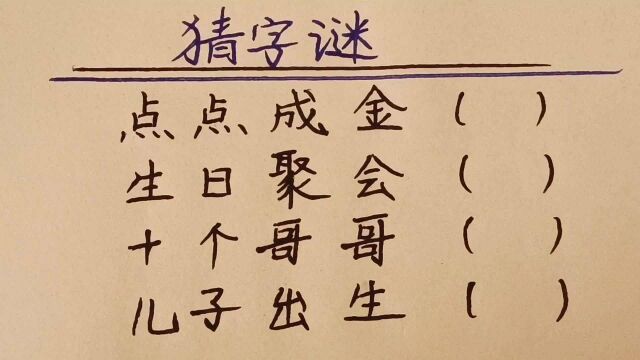 猜字谜
点点成金（ ）
生日聚会（ ）
十个哥哥（ ）
儿子出生（ ）